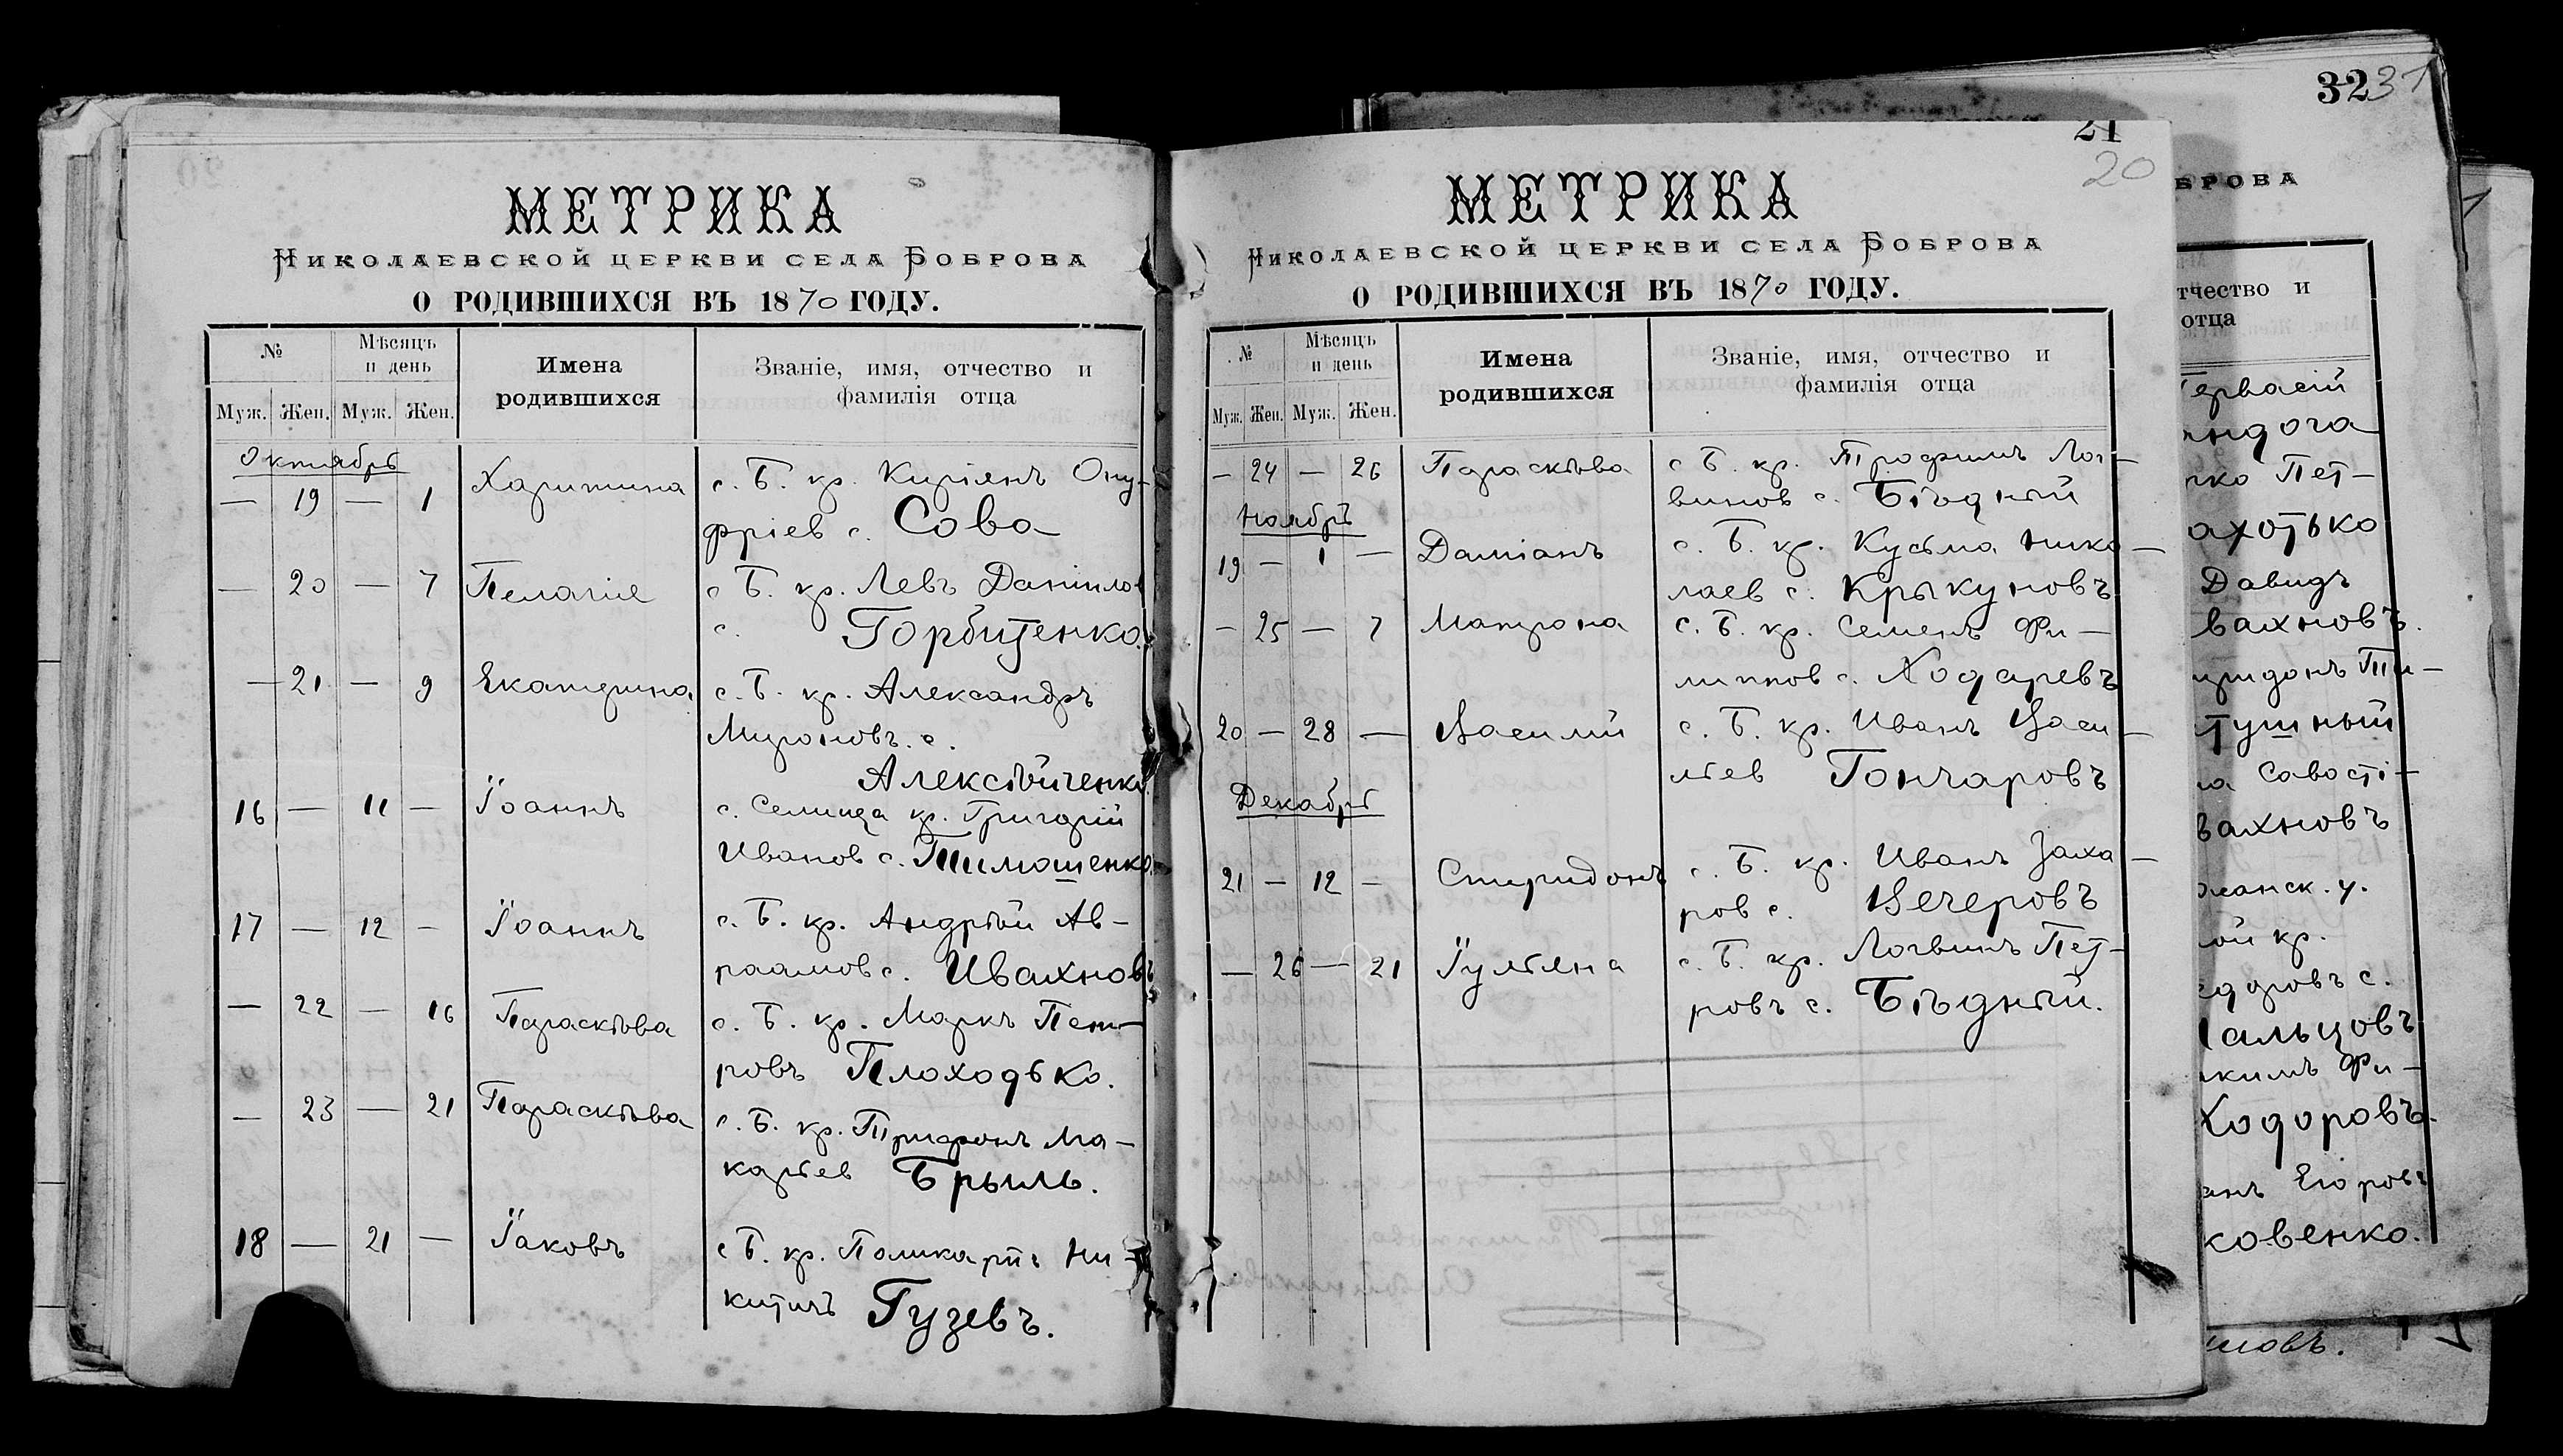 МЕТРИКА
Николаевской церкви села Боброва
О РОДИВШИХСЯ ВЪ 1870 ГОДУ.
№
Мѣсяцъ и день
Имена родившихся
Званіе, имя, отчество и фамилія отца
Муж. Жен. Муж. Жен.
Октябрь
— 19 — 1 Харитина с. Б. кр. Киріянъ Ону-
фріев с. Сова
— 20 — 7 Пелагіе с Б. кр. Левъ Данилов
с. Горбитенко.
— 21 — 9 Екатерина с. Б. кр. Александръ
Мироновъ. с.
Алексѣйченко.
16 — 11 — Іоаннъ с. Семища кр. Григорій
Иванов с. Тимошенко.
17 — 12 — Іоаннъ с. Б. кр. Андрѣй Ав-
раамов с. Ивахновъ
— 22 — 16 Параскѣва с. Б. кр. Маркъ Пет-
ровъ Плоходько.
— 23 — 21 Параскѣва с. Б. кр. Трифонъ Ма-
карьев Брыль.
18 — 21 — Іаковъ с Б. кр. Поликарпъ Ни-
китичъ Гузевъ.
21
20
МЕТРИКА
Николаевской церкви села Боброва
О РОДИВШИХСЯ ВЪ 1870 ГОДУ.
№
Мѣсяцъ и день
Имена родившихся
Званіе, имя, отчество и фамилія отца
Муж. Жен. Муж. Жен.
— 24 — 26 Параскѣва с Б. кр. Трофимъ Лог-
винов с. Бѣдный
Ноябрь
19 — 1 — Даміанъ с. Б. кр. Кузьма Нико-
лаев с. Крыкуновъ
— 25 — 7 Матрона с. Б. кр. Семенъ Фи-
липпов с. Ходаревъ
20 — 28 — Василій с. Б. кр. Иванъ Васи-
льев Гончаровъ
Декабрь
21 — 12 — Спиридонъ с. Б. кр. Иванъ Заха-
ров с. Вечеровъ
— 26 — 21 Іуліяна с. Б. кр. Логвинъ Пет-
ровъ с. Бѣдный.
32 31
БРОВА
тчество и
отца
Гервасій
ндога
ко Пет-
ахотько
Давидъ
вахновъ.
иридонъ Ти-
тушный
а Савості-
вахновъ
жанск. у.
ой кр.
едоровъ с.
альцовъ
кимъ Фи-
Ходоровъ.
анъ Егоровъ
ковенко.
мовъ.